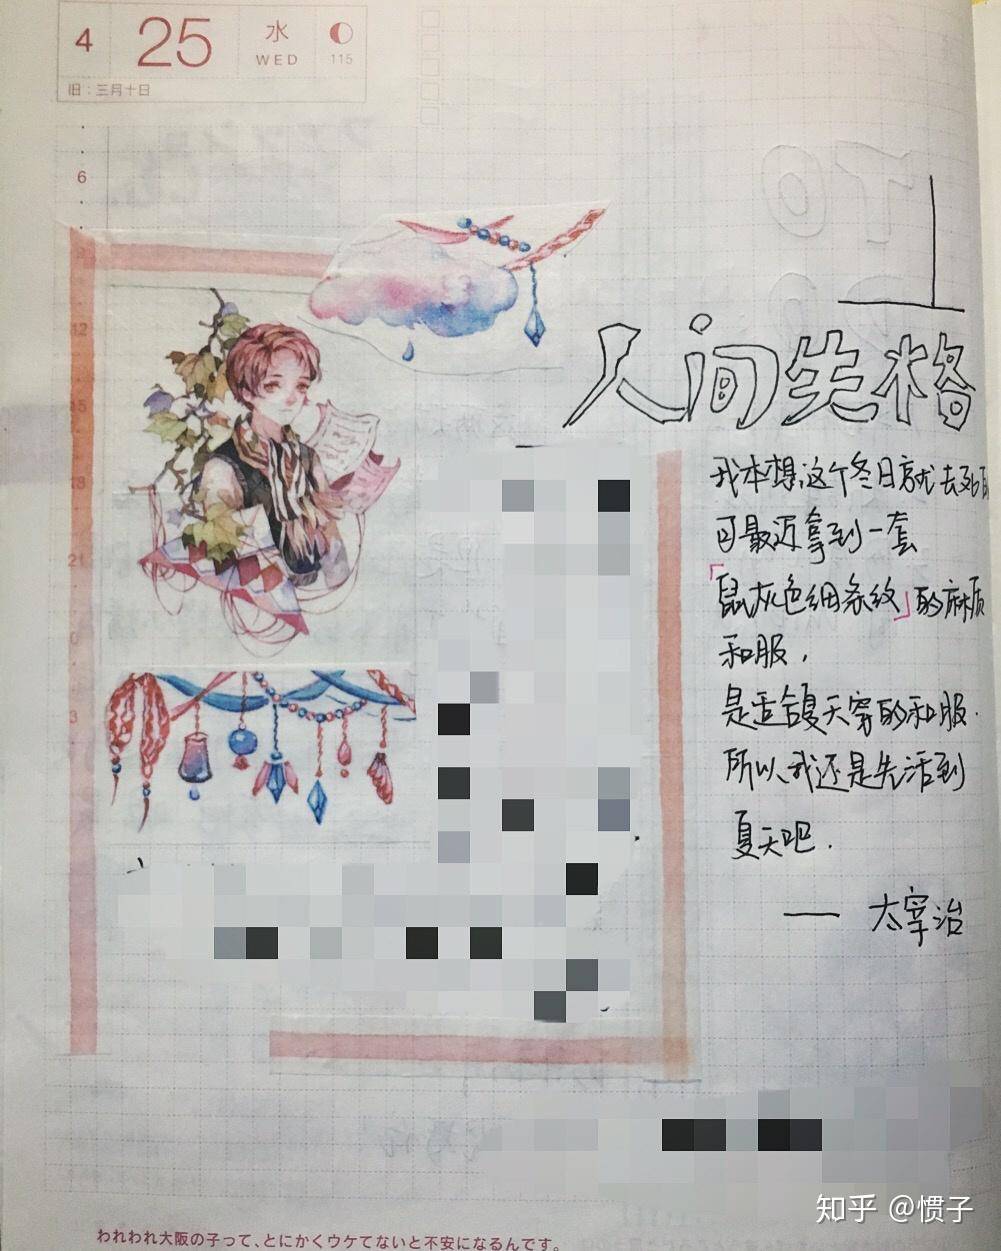 4 25 水 WED 115
旧：三月十日
6
12
15
18
21
0
3
人间失格
我本想这个冬日就去死的
可最近拿到一套
「鼠灰色细条纹」的麻质
和服，
是适合夏天穿的和服.
所以我还是先活到
夏天吧.
—— 太宰治
知乎 @惯子
われわれ大阪の子って、とにかくウケてないと不安になるんです。